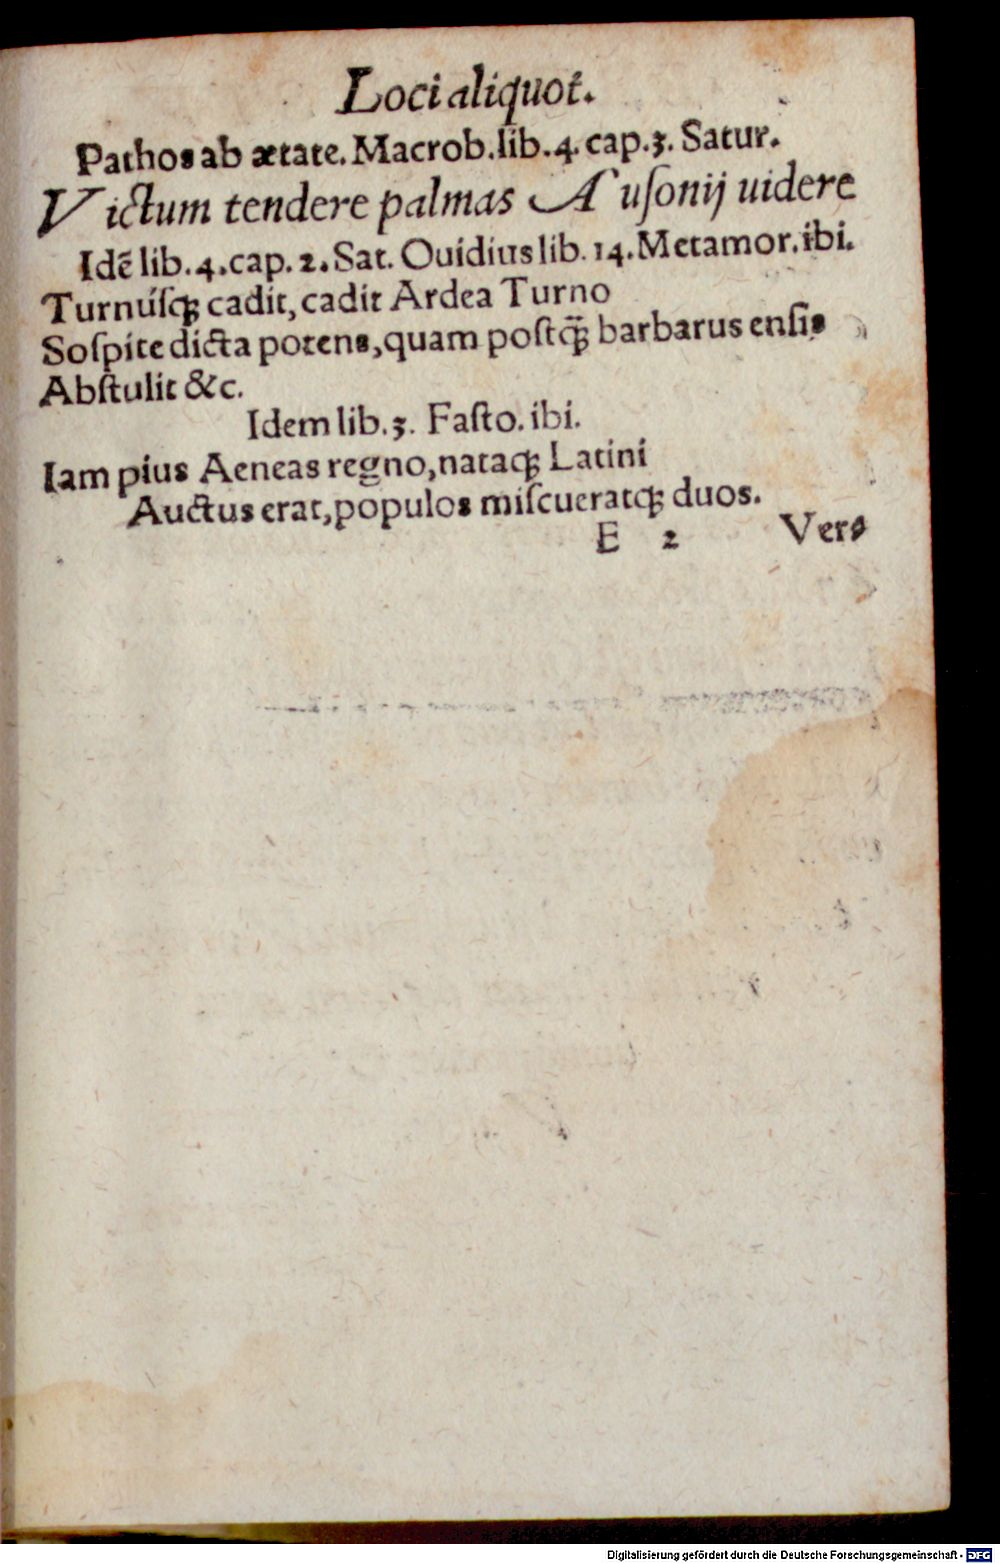 Loci aliquot.
Pathos ab ætate. Macrob. lib. 4. cap. 3. Satur.
Victum tendere palmas Auſonij uidere
Idē lib. 4. cap. 2. Sat. Ouidius lib. 14. Metamor. ibi.
Turnúſqꝫ cadit, cadit Ardea Turno
Soſpite dicta potens, quam poſtq̃ꝫ barbarus enſis
Abſtulit &c.
Idem lib. 3. Faſto. ibi.
Iam pius Aeneas regno, nataqꝫ Latini
Auctus erat, populos miſcueratqꝫ duos.
E 2 Vers
Digitalisierung gefördert durch die Deutsche Forschungsgemeinschaft - DFG